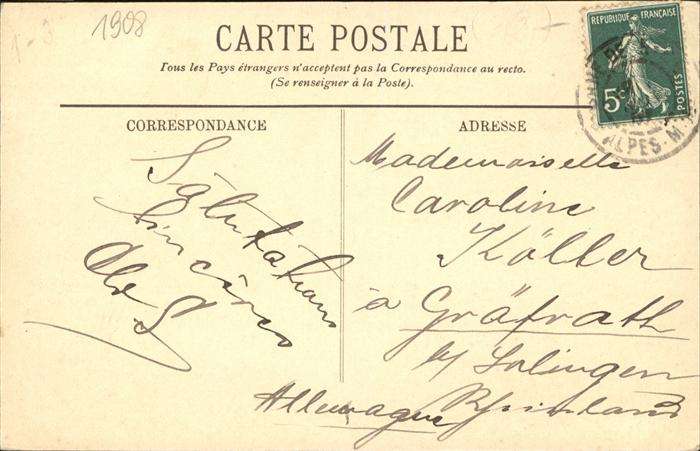 1908
CARTE POSTALE
Tous les Pays étrangers n'acceptent pas la Correspondance au recto.
(Se renseigner à la Poste).
REPUBLIQUE FRANÇAISE
5c
POSTES
ALPES-M
CORRESPONDANCE
Salutations
sincères
ADRESSE
Mademoiselle
Caroline
Köller
à Gräfrath
b/ Solingen
Allemagne Rheinland